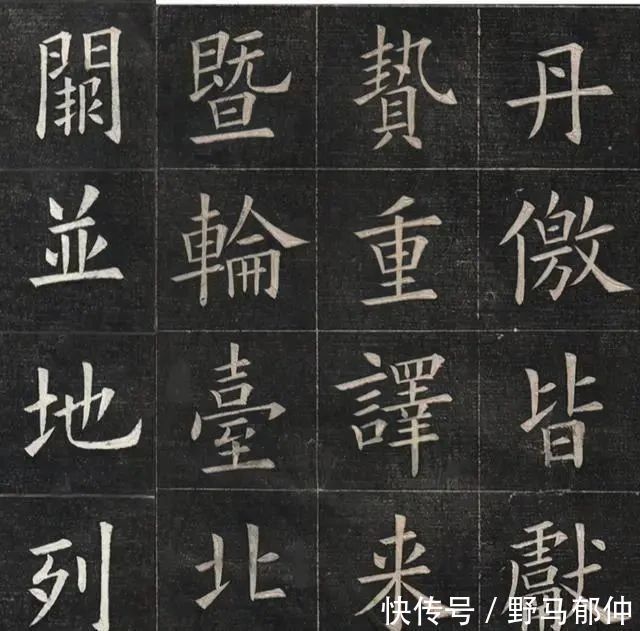 丹儌皆獻
贄重譯来
暨輪臺北
闕並地列
快传号 / 野马郁仲